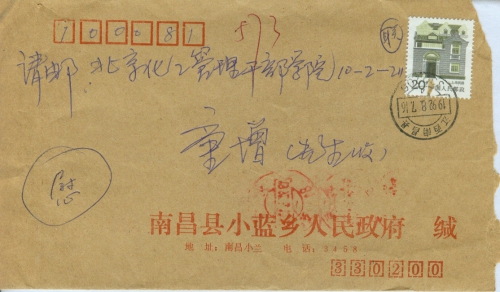 100081
573
请邮.北京化工管理干部学院10-2-24
20
童增(先生收)
南昌县小蓝乡人民政府 缄
地 址:南昌小兰 电 话:2458
330200